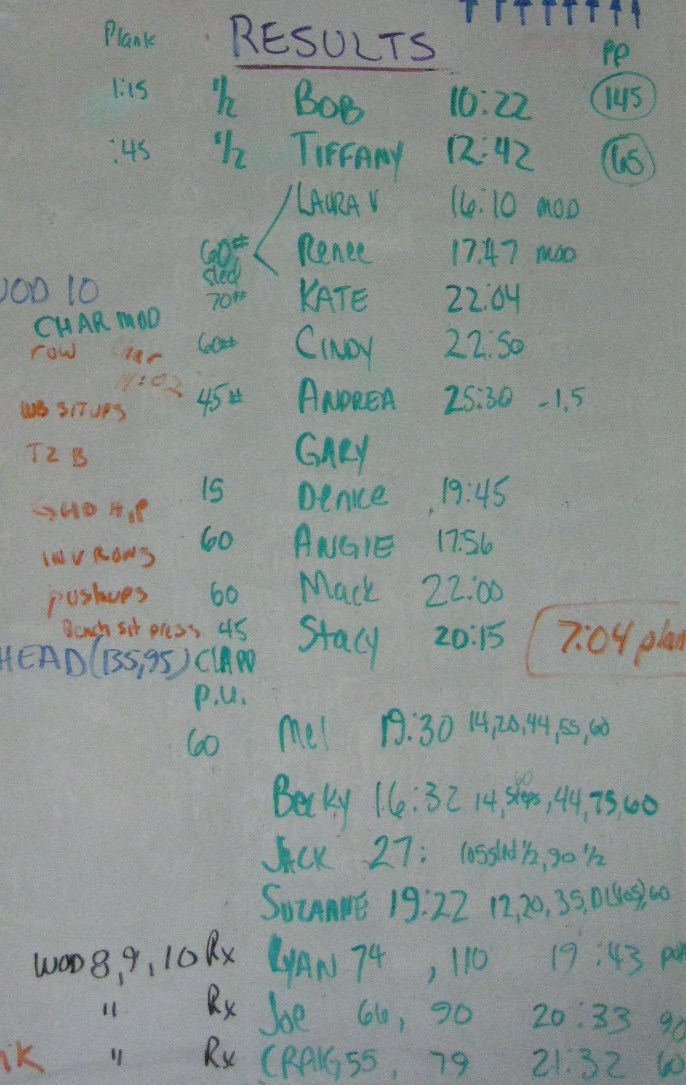 Plank RESULTS PP
1:15 1/2 BOB 10:22 145
:45 1/2 TIFFANY 12:42 65
LAURA V 16:10 MOD
60# sled Renee 17:47 MOD
70# KATE 22:04
OOD 10
CHAR MOD
row
60# CINDY 22:50
45# ANDREA 25:30 -1.5
WB SITUPS
T2B GARY
15 Denice 19:45
GHD HIP
60 ANGIE 17:56
INV ROWS
pushups 60 Mack 22:00
Bench sit press 45 Stacy 20:15 7:04 plan
HEAD (135,95) CLAPP
P.U.
60 Mel 19:30 14,20,44,55,60
Becky 16:32 14, steps, 44,75,60
60
JACK 27: 105 sled 1/2, 90 1/2
SUZANNE 19:22 12,20,35, DL(105),60
WOD 8,9,10 Rx RYAN 74, 110 19:43
" Rx Joe 66, 90 20:33 90
NK " Rx CRAIG 55, 79 21:32 60